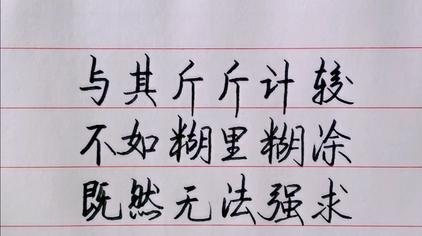 与其斤斤计较
不如糊里糊涂
既然无法强求